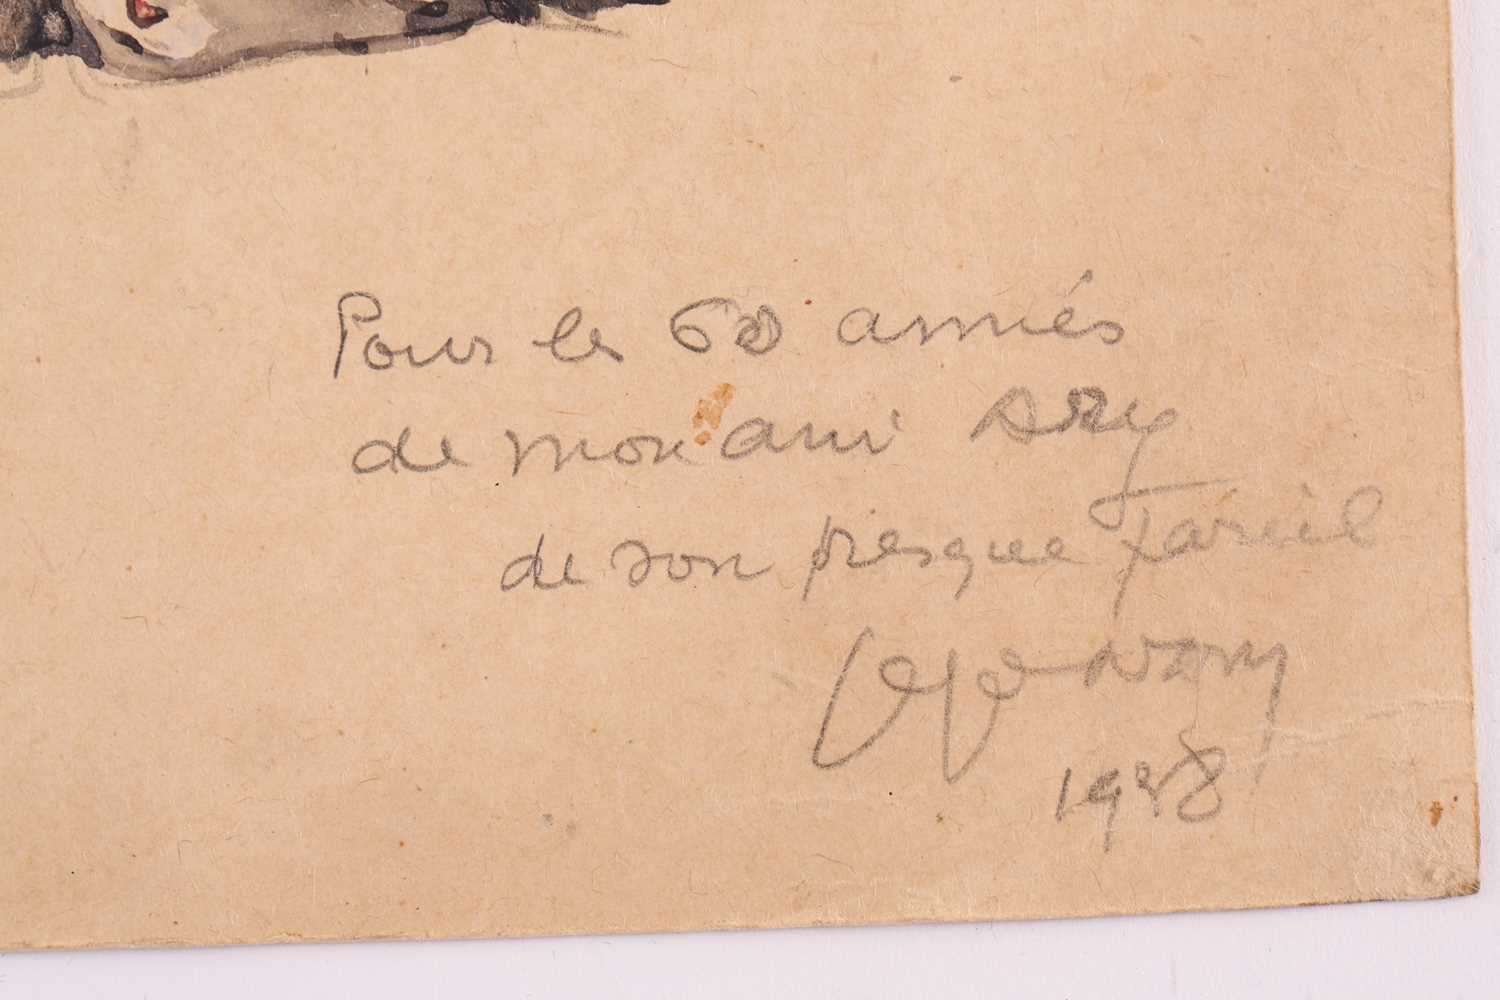 Pour les 60 années
de mon ami Ary
de son presque pareil
1928